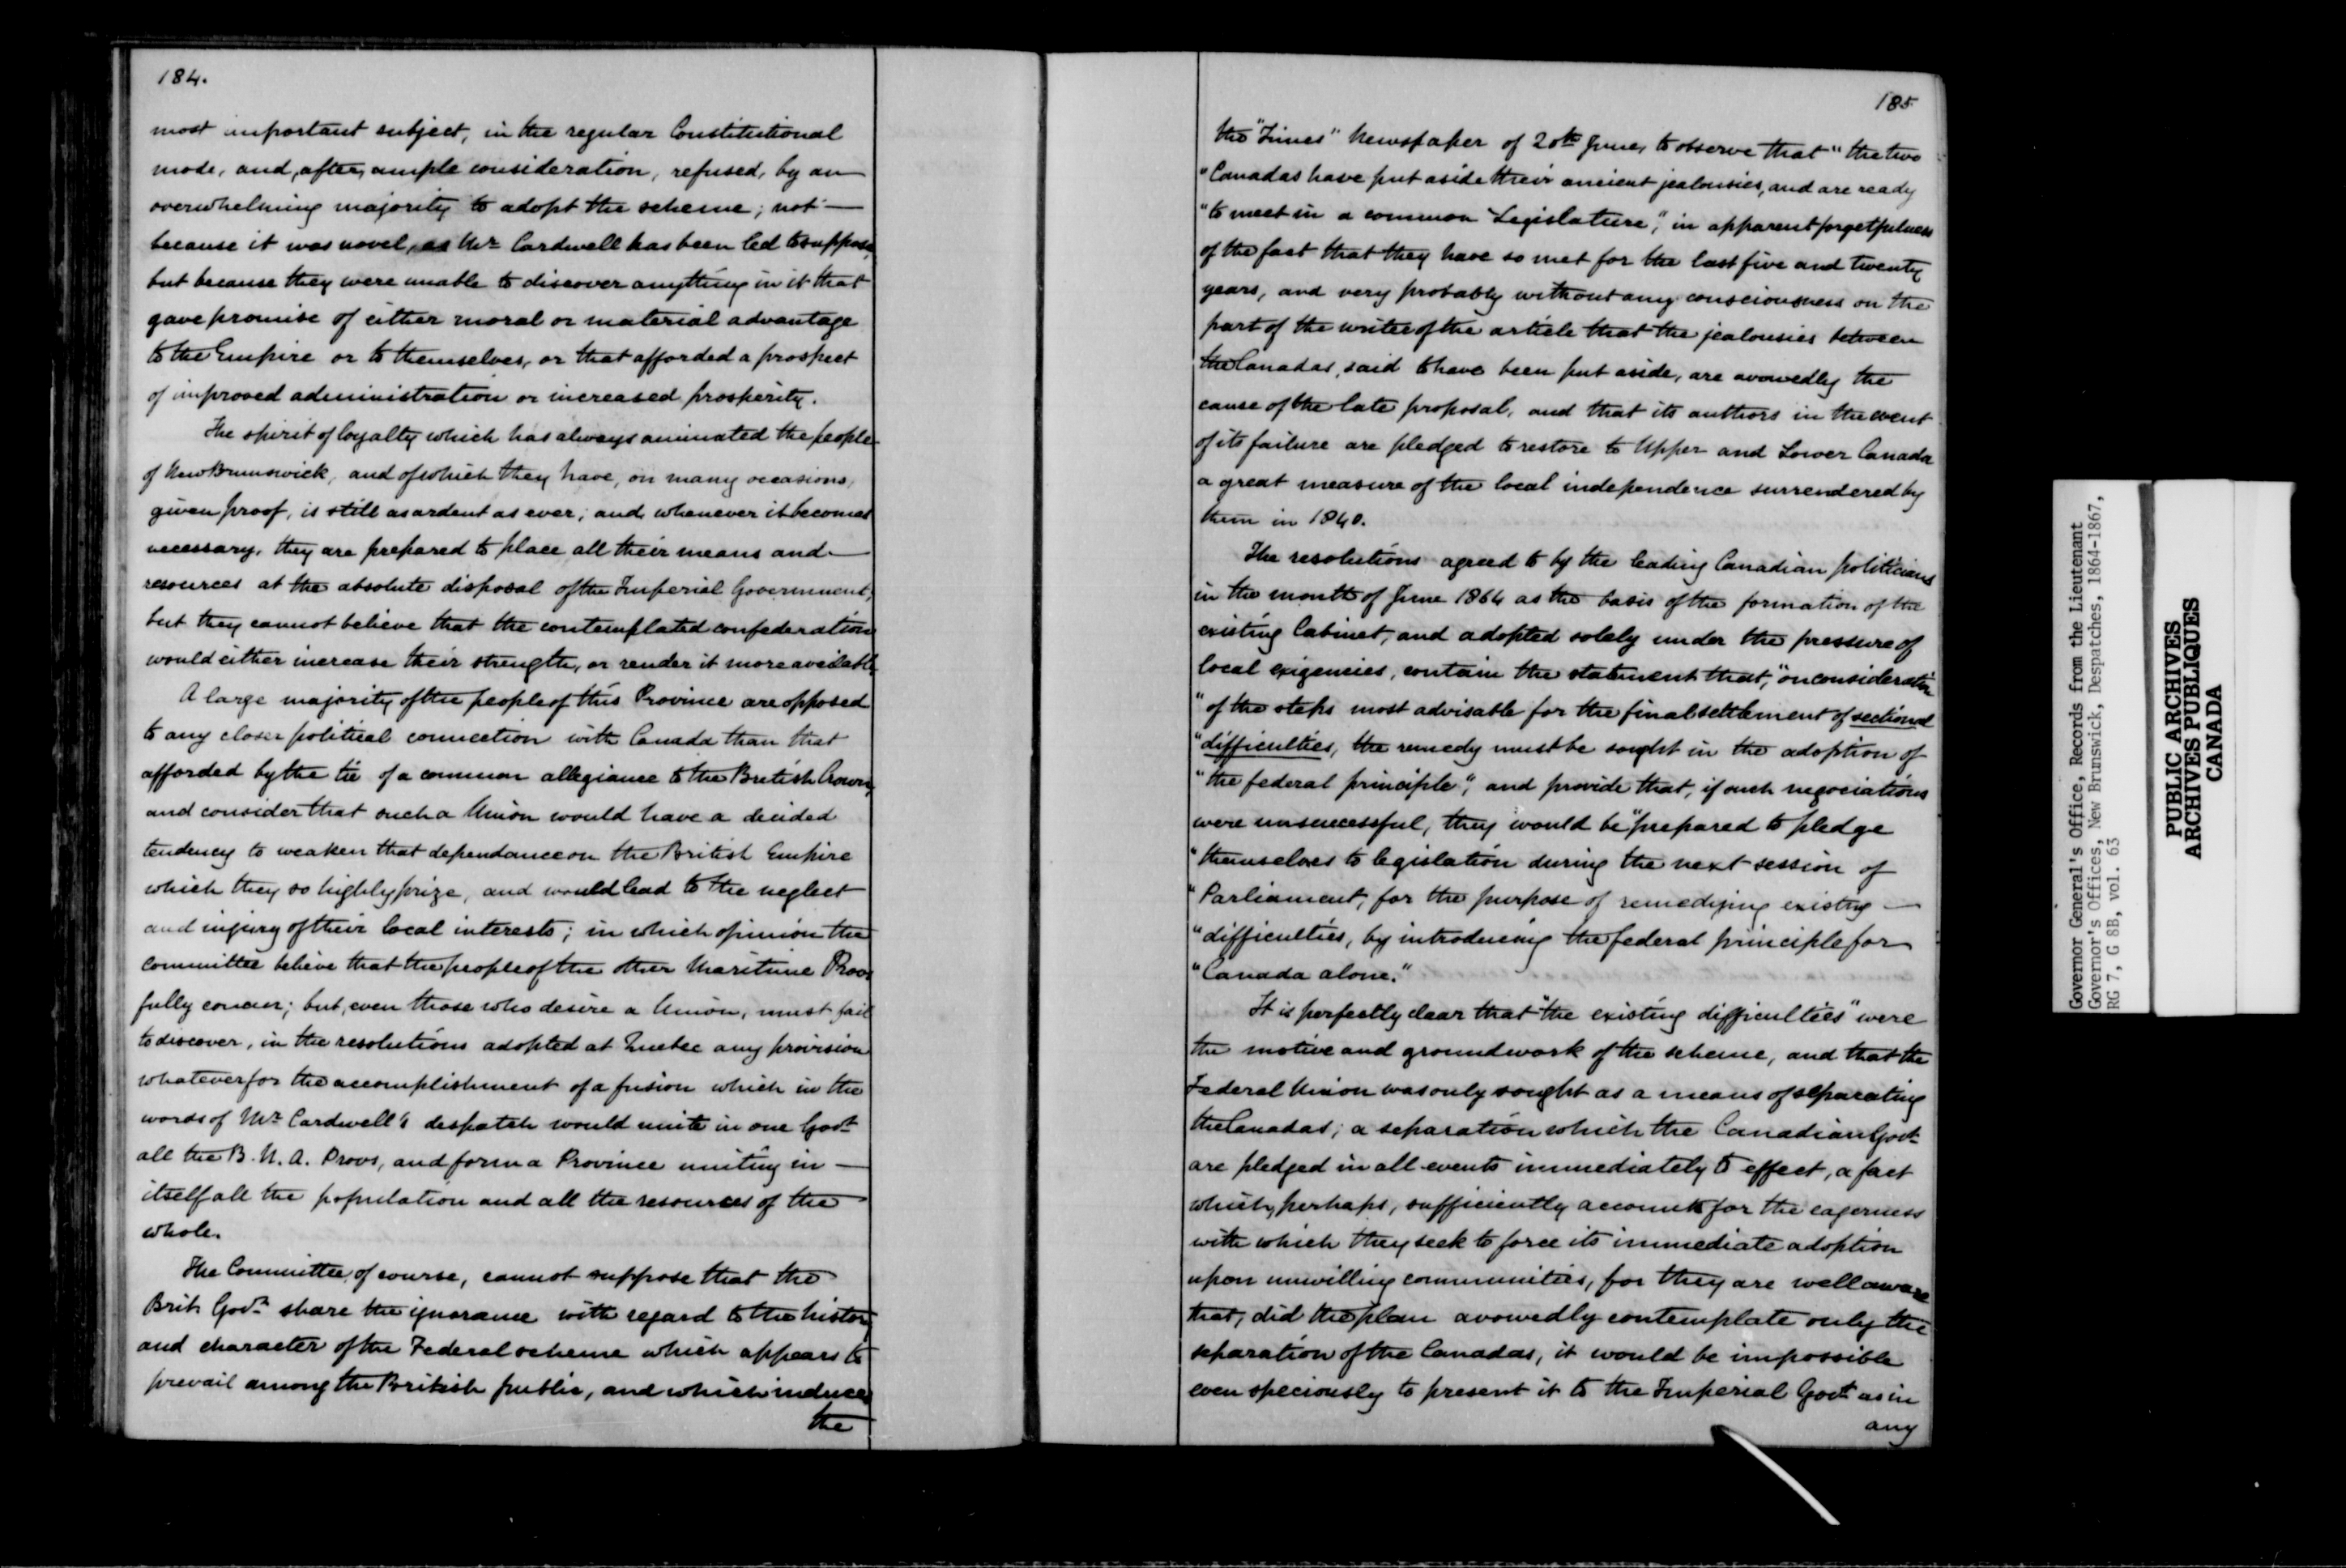 184.
most important subject, in the regular Constitutional
mode, and, after, ample consideration, refused, by an
overwhelming majority to adopt the scheme; not —
because it was novel, as Mr Cardwell has been led to suppose,
but because they were unable to discover anything in it that
gave promise of either moral or material advantage
to the Empire or to themselves, or that afforded a prospect
of improved administration or increased prosperity.
The spirit of loyalty which has always animated the people
of New Brunswick, and of which they have, on many occasions,
given proof, is still as ardent as ever; and whenever it becomes
necessary, they are prepared to place all their means and —
resources at the absolute disposal of the Imperial Government;
but they cannot believe that the contemplated confederation
would either increase their strength, or render it more available.
A large majority of the people of this Province are opposed
to any closer political connection with Canada than that
afforded by the tie of a common allegiance to the British Crown,
and consider that such a Union would have a decided
tendency to weaken that dependance on the British Empire
which they so highly prize, and would lead to the neglect
and injury of their local interests; in which opinion the
Committee believe that the people of the other Maritime Provs
fully concur; but, even those who desire a Union, must fail
to discover, in the resolutions adopted at Quebec any provision
whatever for the accomplishment of a fusion which in the
words of Mr Cardwell's despatch would unite in one Govt
all the B. N. A. Provs, and form a Province uniting in —
itself all the population and all the resources of the
whole.
The Committee, of course, cannot suppose that the
Brit. Govt share the ignorance with regard to the history
and character of the Federal scheme which appears to
prevail among the British public, and which induces
the
185
the "Times" Newspaper of 20th June, to observe that "the two
"Canadas have put aside their ancient jealousies, and are ready
"to meet in a common Legislature", in apparent forgetfulness
of the fact that they have so met for the last five and twenty
years, and very probably without any consciousness on the
part of the writer of the article that the jealousies between
the Canadas, said to have been put aside, are avowedly the
cause of the late proposal, and that its authors in the event
of its failure are pledged to restore to Upper and Lower Canada
a great measure of the local independence surrendered by
them in 1840.
The resolutions agreed to by the leading Canadian politicians
in the month of June 1864 as the basis of the formation of the
existing Cabinet, and adopted solely under the pressure of
local exigencies, contain the statement that, "on consideration
"of the steps most advisable for the final settlement of sectional
"difficulties, the remedy must be sought in the adoption of
"the federal principle", and provide that, if such negociations
were unsuccessful, they would be "prepared to pledge
"themselves to legislation during the next session of
"Parliament, for the purpose of remedying existing —
"difficulties, by introducing the federal principle for
"Canada alone."
It is perfectly clear that "the existing difficulties" were
the motive and groundwork of the scheme, and that the
Federal Union was only sought as a means of separating
the Canadas; a separation which the Canadian Govt
are pledged in all events immediately to effect, a fact
which, perhaps, sufficiently accounts for the eagerness
with which they seek to force its immediate adoption
upon unwilling communities, for they are well aware
that, did the plan avowedly contemplate only the
separation of the Canadas, it would be impossible
even speciously to present it to the Imperial Govt as in
any
Governor General's Office, Records from the Lieutenant
Governor's Offices, New Brunswick, Despatches, 1864-1867,
RG 7, G 8B, vol. 63
PUBLIC ARCHIVES
ARCHIVES PUBLIQUES
CANADA